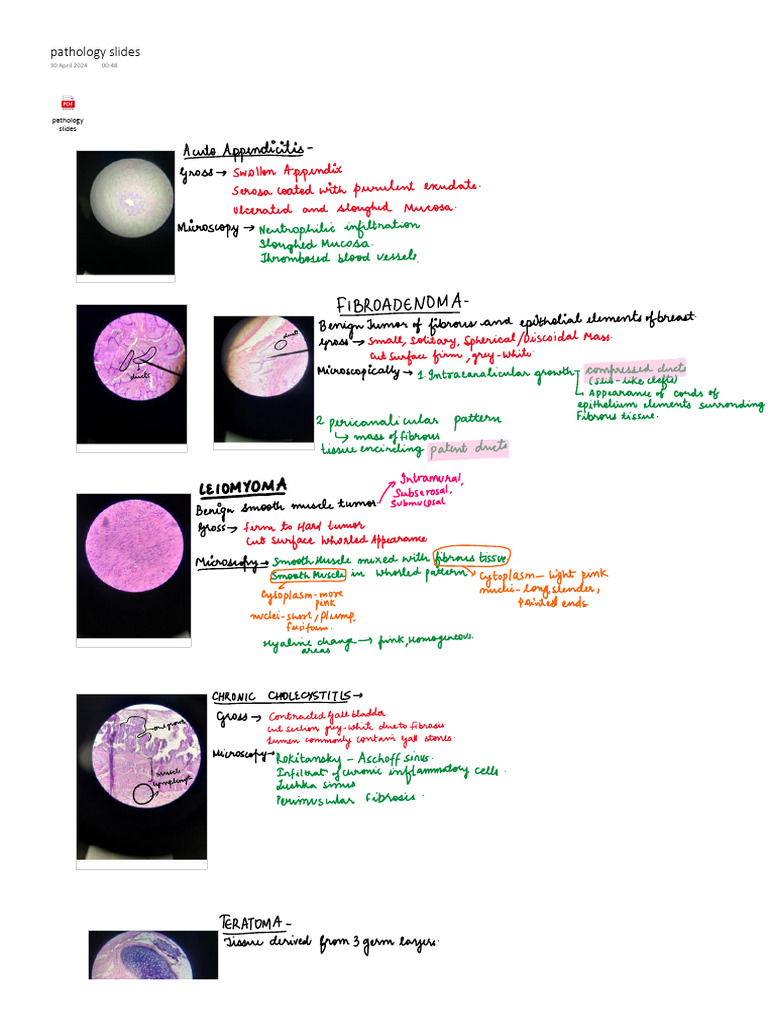 pathology slides
30 April 2024 00:48
PDF
pathology
slides
Acute Appendicitis -
Gross → Swollen Appendix
Serosa coated with purulent exudate.
Ulcerated and sloughed Mucosa.
Microscopy → Neutrophilic infiltration
Sloughed Mucosa.
Thrombosed blood vessels.
FIBROADENOMA -
Benign Tumor of fibrous and epithelial elements of breast.
Gross → Small, Solitary, Spherical/Discoidal Mass.
Cut Surface firm, grey-white.
Microscopically → 1. Intracanalicular growth compressed ducts
(slit-like clefts)
Appearance of cords of
epithelium elements surronding
Fibrous tissue.
2 pericanalicular pattern
↳ mass of fibrous
tissue encircling patent ducts
ducts
ducts
LEIOMYOMA
Benign smooth muscle tumor → Intramural,
Subserosal,
Submucosal
Gross → firm to Hard tumor
Cut Surface Whorled Appearance
Microscopy → Smooth Muscle mixed with fibrous tissue
Smooth Muscle in whorled pattern
Cytoplasm - light pink
nuclei - long, slender,
pointed ends
Cytoplasm - more
pink
nuclei - short, plump,
fusiform.
Hyaline change → pink, Homogeneous
areas
CHRONIC CHOLECYSTITIS →
Gross → Contracted Gall bladder
Cut section grey-white due to fibrosis
Lumen commonly contain Gall stones.
Microscopy → Rokitansky - Aschoff sinus.
Infiltrat of cronic inflammatory cells.
Lushka sinus
Perimuscular Fibrosis.
muscle
lymphocyt
TERATOMA -
Tissue derived from 3 germ layers.